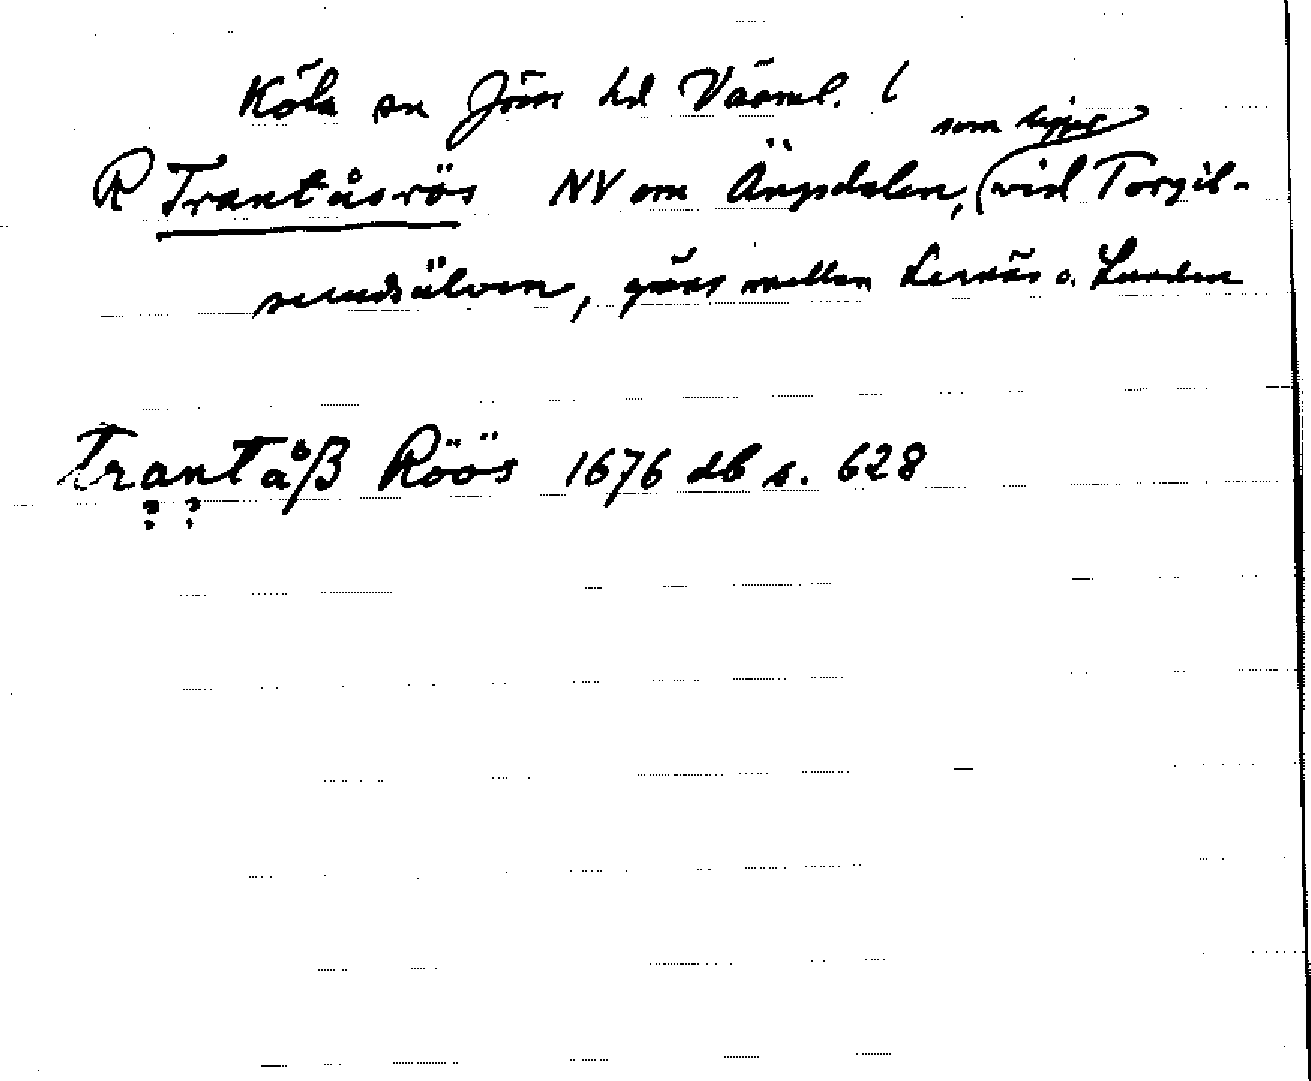 Köla sn Jösse hd Värml. l
som ligger
R Trantåsrös NV om Ängsdalen, (vid Torgil-
srudsälven, gräns mellan Lernäs o. Lunden
Trantåß Röös 1676 db s. 628
? ?